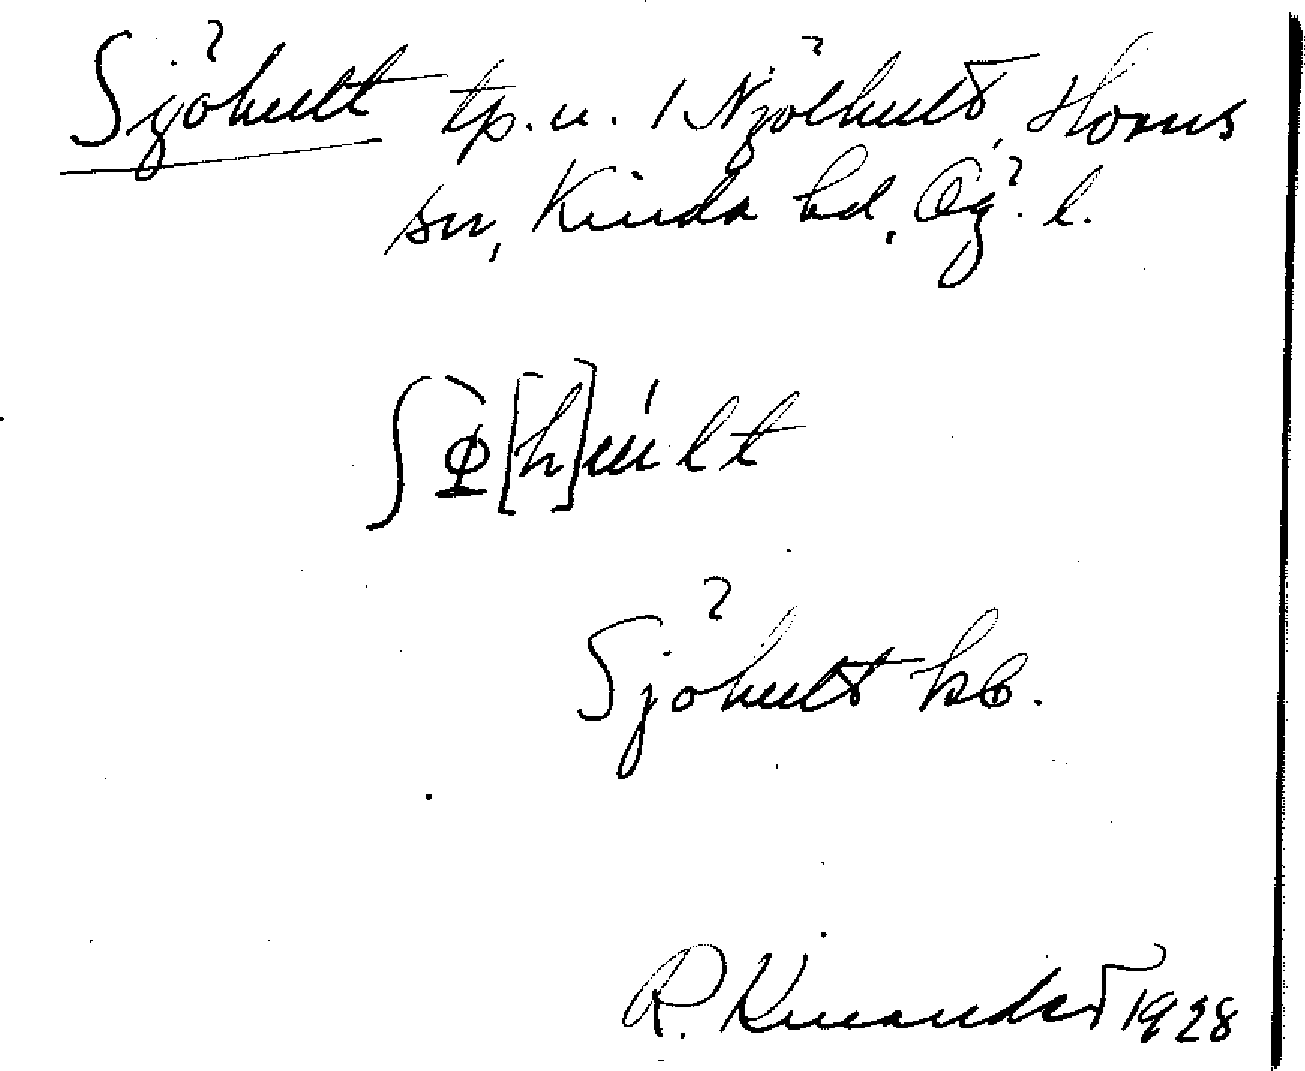 Sjöhult tp. u. 1 Njölhult, Horns
sn, Kinda hd, Ög. l.
ʃꞶ̀[h]ŭ́lt
Sjöhult kb.
R. Kinander 1928